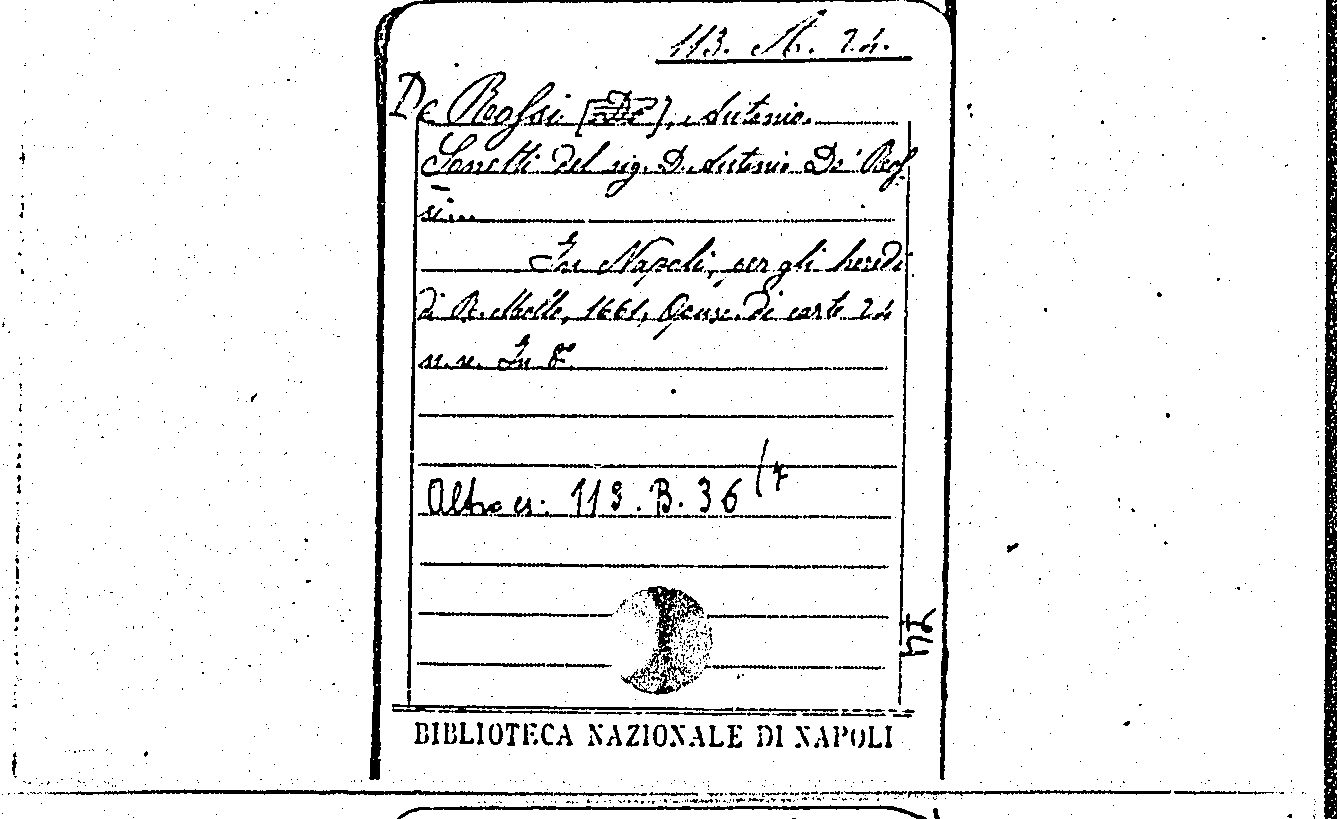 113. A. 24.
De Rossi [De], Antonio.
Sonetti del sig. D. Antonio De' Ros-
si...
In Napoli, per gli heredi
di R. Mollo, 1661, Opusc. di carte 24
n. n. In 8°
Altro es: 113. B. 36 (7
BIBLIOTECA NAZIONALE DI NAPOLI